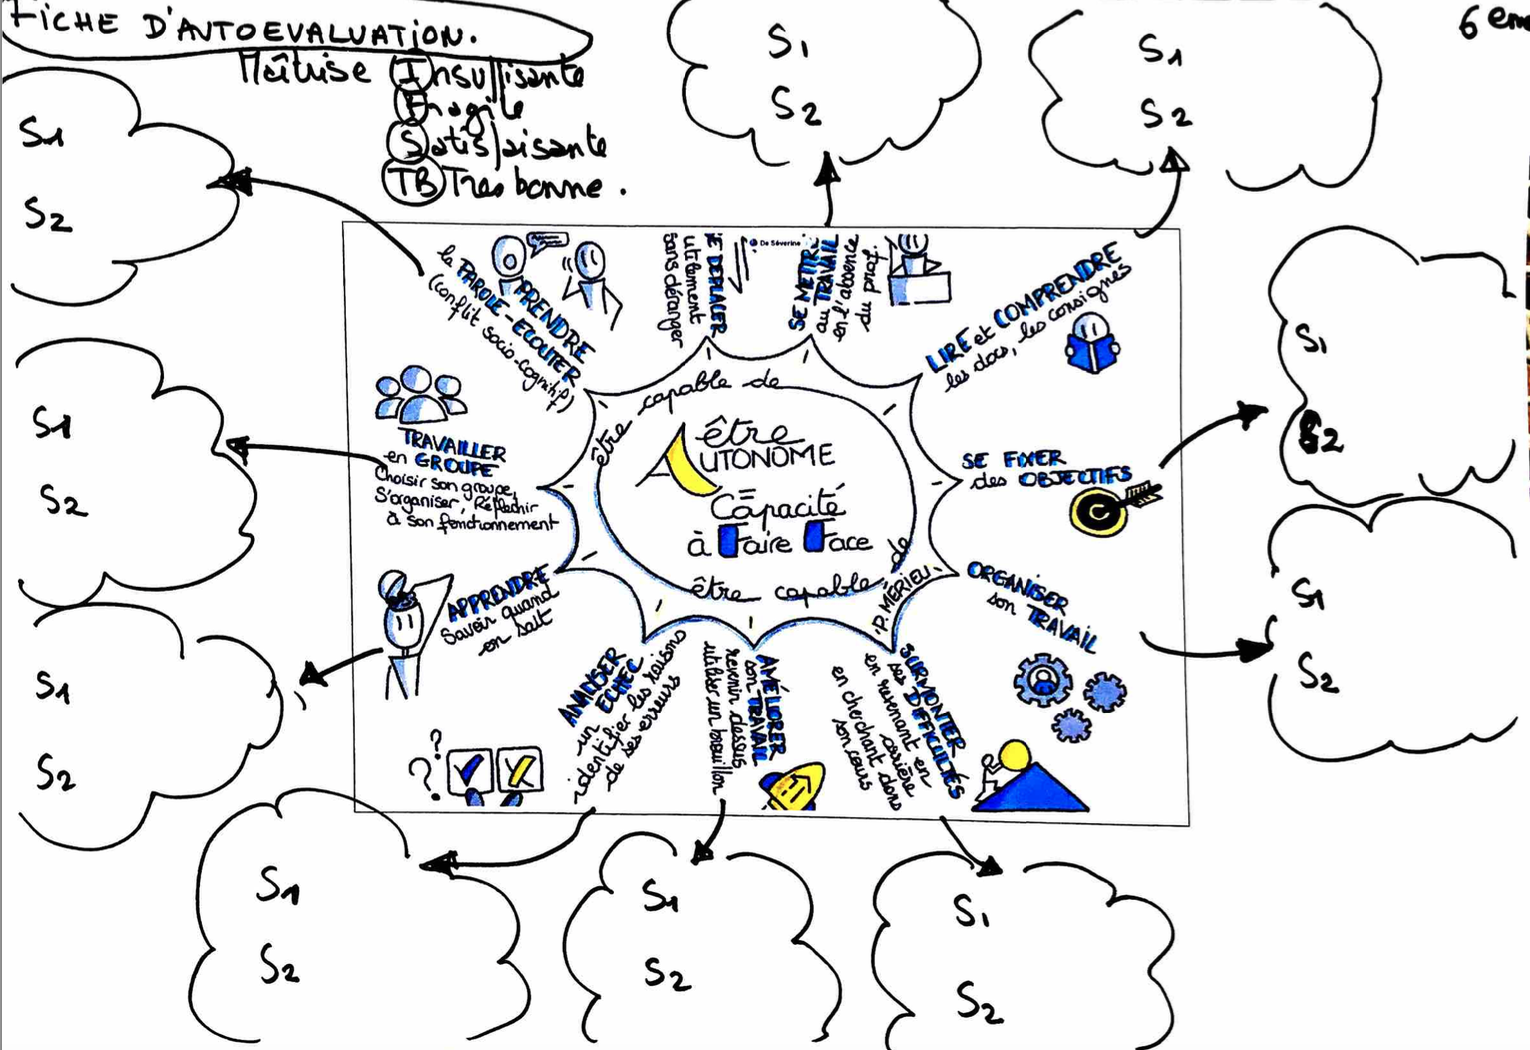 FICHE D'AUTOEVALUATION.
6 eme
Maîtrise Insuffisante
Fragile
Satisfaisante
TB Tres bonne.
S1
S2
S1
S2
S1
S2
la PRENDRE
PAROLE - ECOUTER
(conflit socio-cognitif)
SE DEPLACER
utilement
sans déranger
De Séverine
SE METTRE
au TRAVAIL
en l'absence
du prof.
LIRE et COMPRENDRE
les docs, les consignes
S1
S2
S1
S2
TRAVAILLER
en GROUPE
Choisir son groupe,
S'organiser, Réfléchir
à son fonctionnement
être capable de
être
AUTONOME
=
Capacité
à Faire Face
être capable de
P. MERIEU
SE FIXER
des OBJECTIFS
ORGANISER
son TRAVAIL
S1
S2
APPRENDRE
Savoir quand
on sait
S1
S2
ANALYSER
un ECHEC
identifier les raisons
de ses erreurs
AMÉLIORER
son TRAVAIL
revenir dessus
utiliser un brouillon
SURMONTER
ses DIFFICULTÉS
en revenant en
arrière
en cherchant dans
son cours
? ?
S1
S2
S1
S2
S1
S2